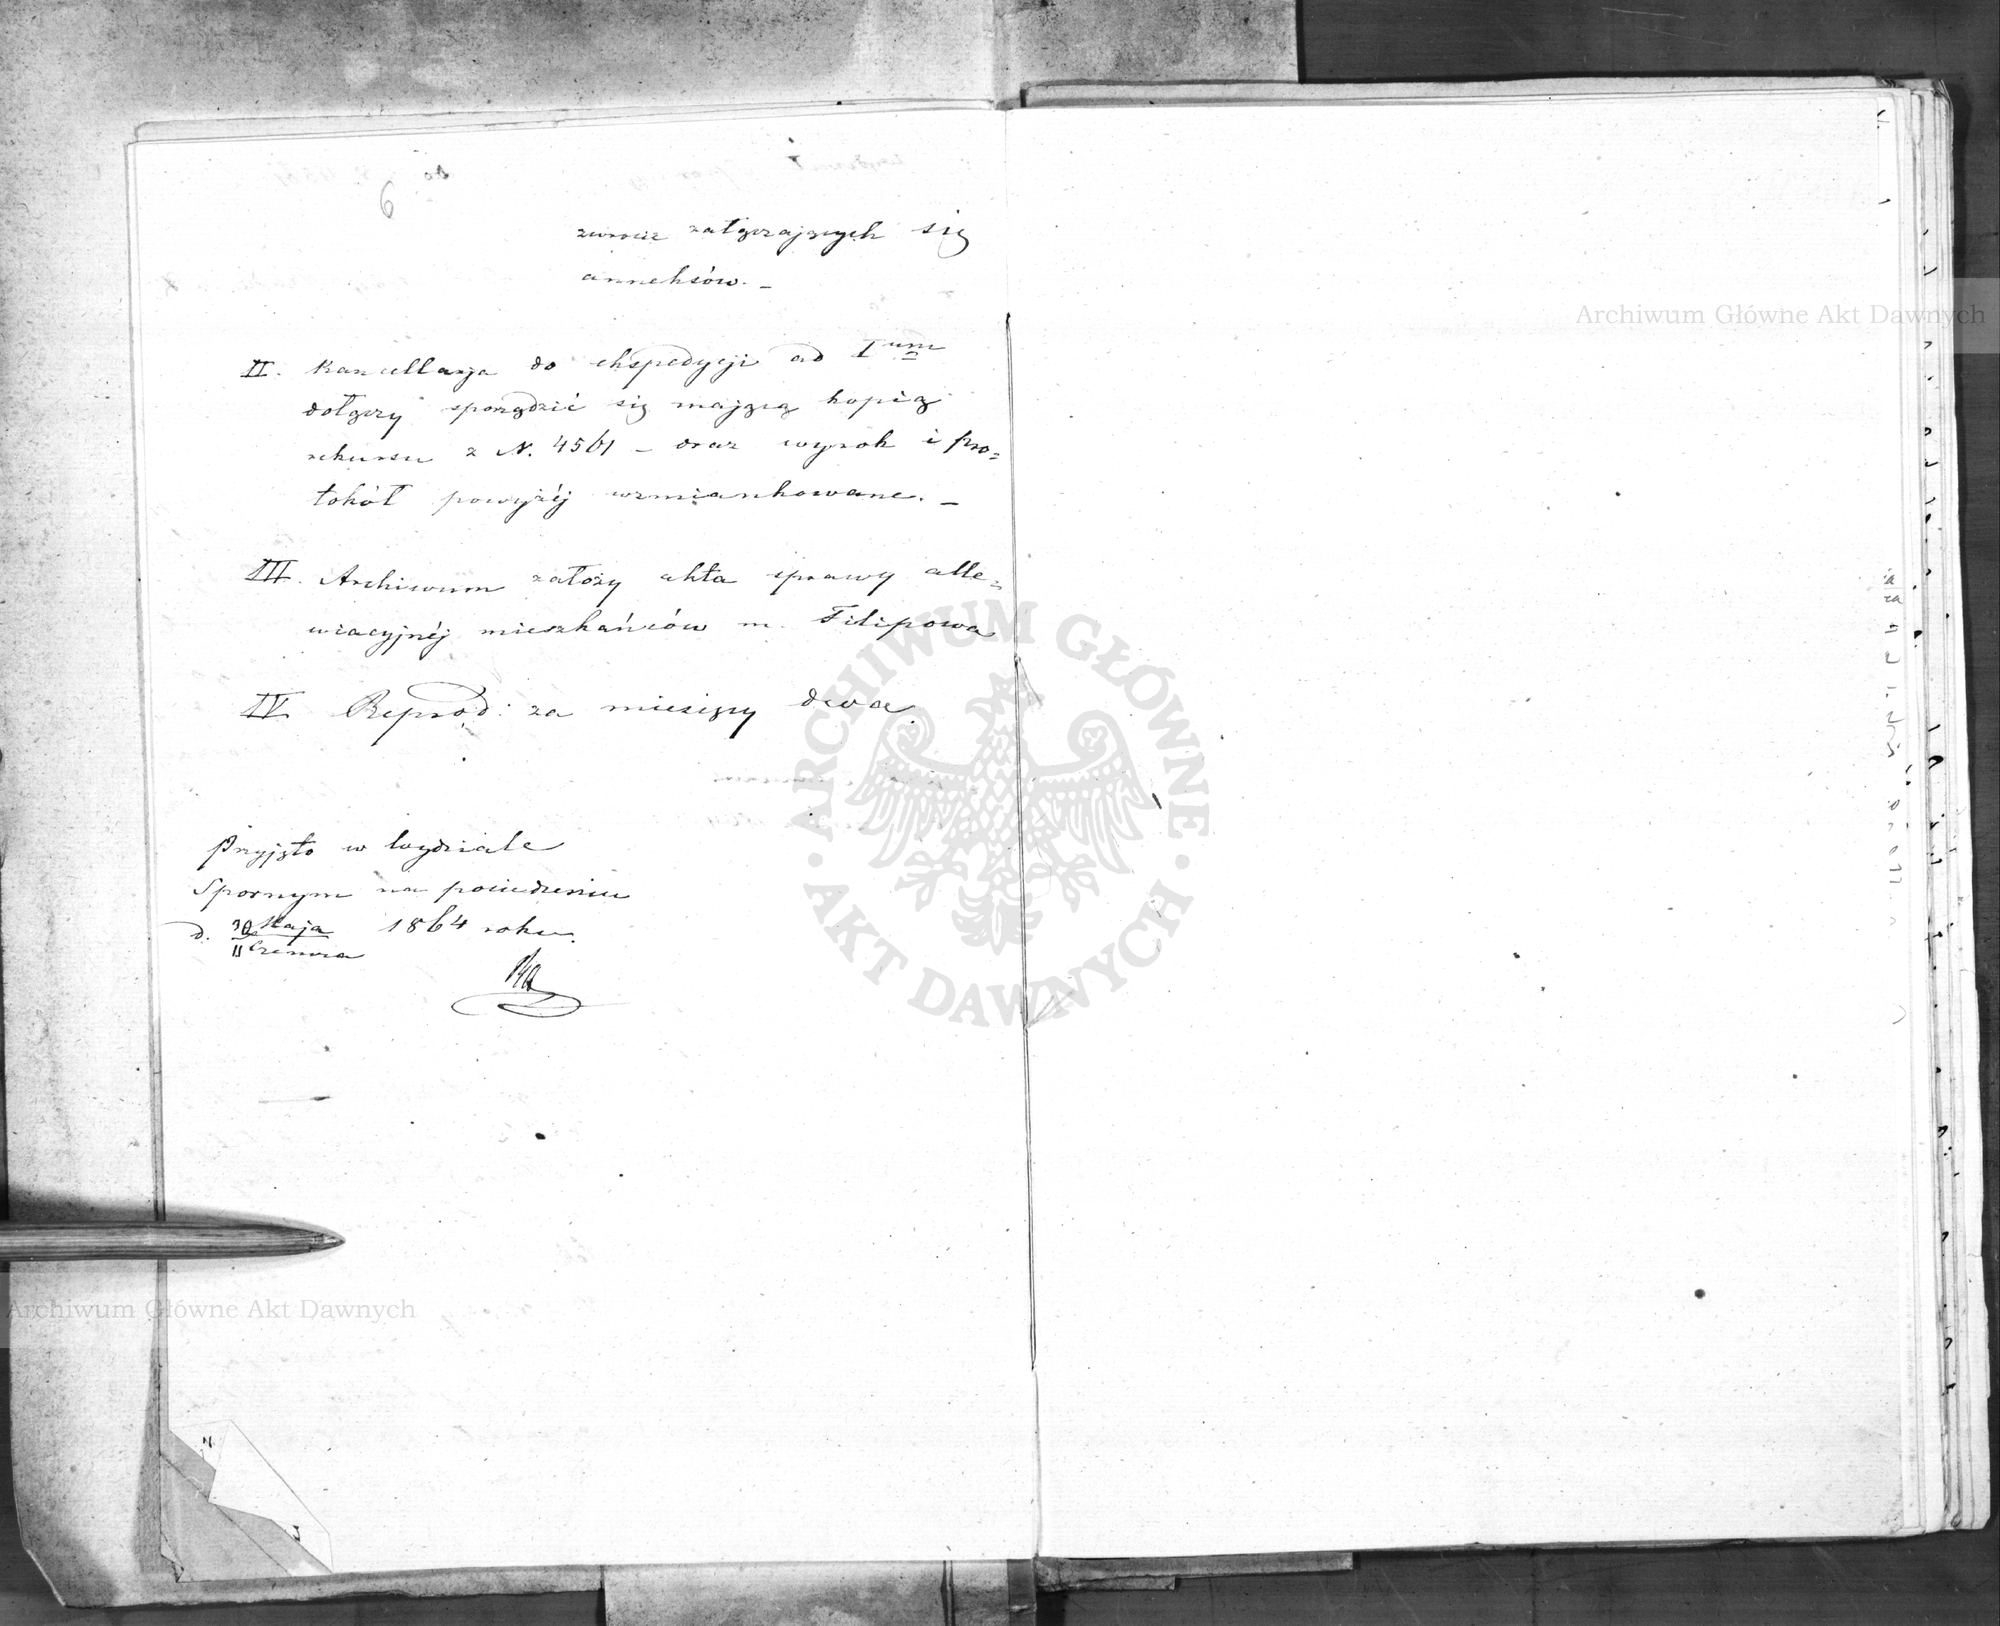 6
zwrotu załączających się
anneksów. –
II. Kancellarja do ekspedycji ad I um
dołączy sporządzić się mającą kopią
rekursu z N. 4561 – oraz wyrok i pro-
tokół powyżéj wzmiankowane. –
III. Archiwum założy akta sprawy alle-
wiacyjnéj mieszkańców m. Filipowa
IV Reprod: za miesięcy dwa.
Przyjęto w Wydziale
Spornym na posiedzeniu
d. 30 Maja / 11 Czerwca 1864 roku.
Archiwum Główne Akt Dawnych
Archiwum Główne Akt Dawnych
ARCHIWUM GŁÓWNE
AKT DAWNYCH